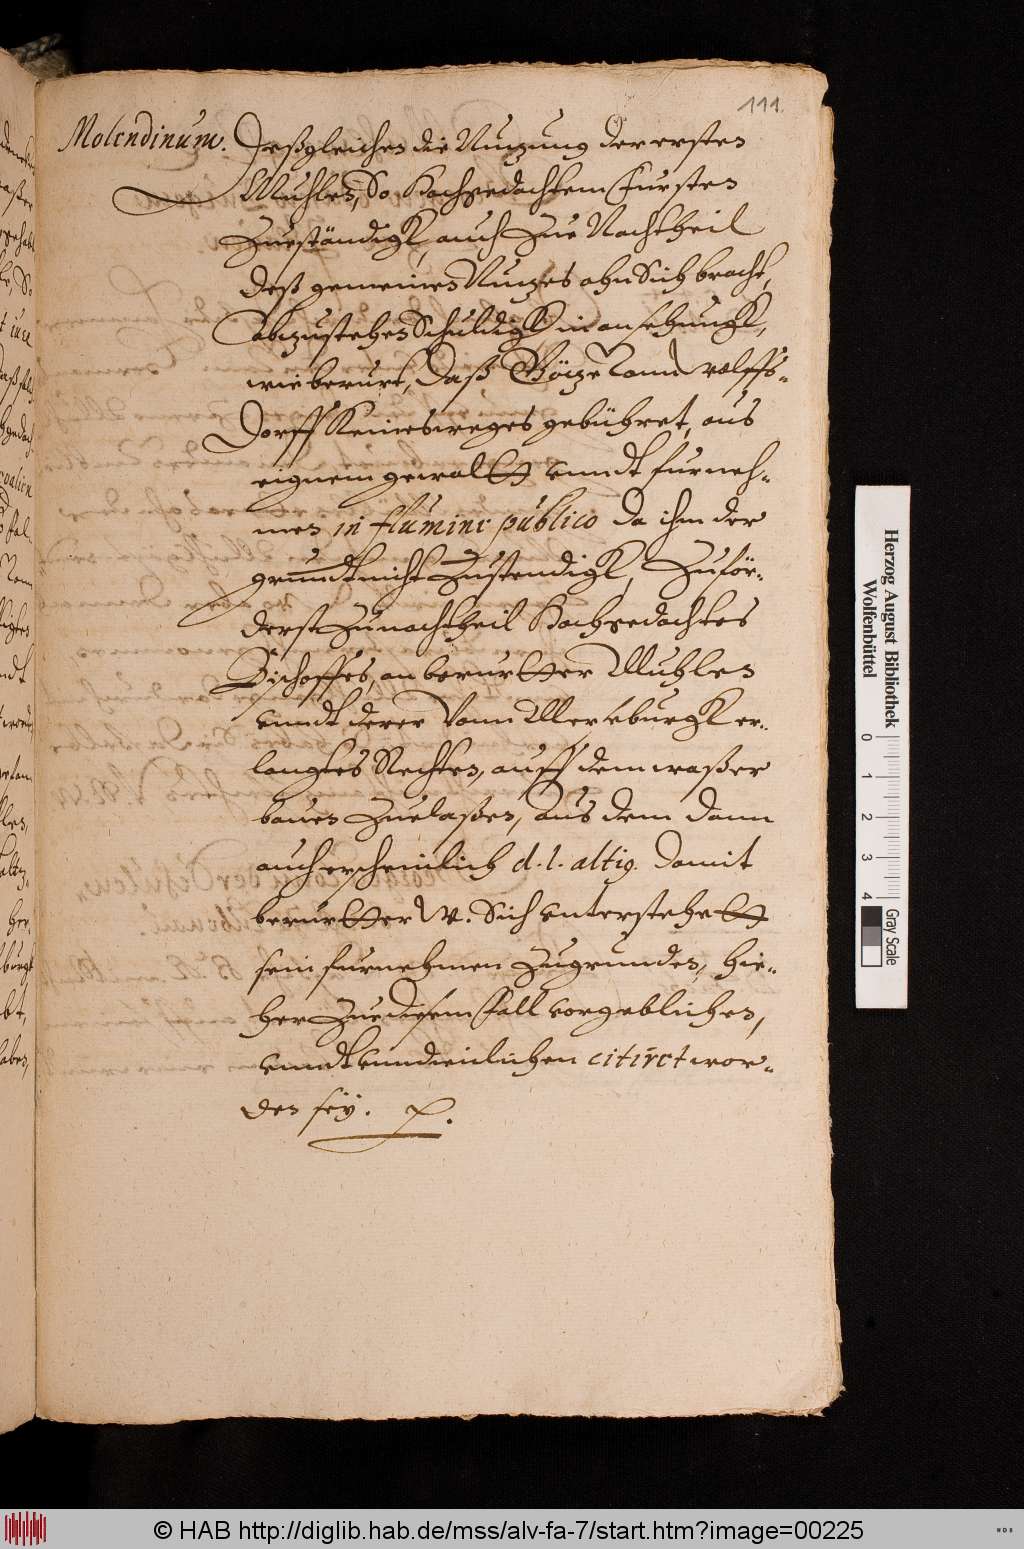 111.
Molendinum. Deßgleichen die Nutzung der ersten
Muhlen, So Hochgedachtem Fursten
Zueständigk, auch Zue Nachtheil
deß gemeinen Nutzes ahn Sich bracht,
abzustehen Schuldigk in ansehungk,
wie berurt, daß Götze vom Wolffs-
dorff Keinesweges gebühret, aus
eignem gewaltt vnndt furneh-
men in flumine publico da ihm der
grundt nicht Zustendigk, Zuför-
derst Zu nachtheil Hochgedachtes
Bischoffes, an berurtter Muhlen
vnndt derer vonn Merseburgk er-
langtes Rechten, auff dem waßer
bauen Zuelaßen, Aus dem dann
auch erscheinlich d. l. altig. damit
berurtter W. Sich vnterstehett
sein furnehmen Zugrunden, hie-
her Zue diesem Fall vorgeblichen,
vnndt vndienlichen citirct wor-
den sey.
Herzog August Bibliothek
Wolfenbüttel
0 1 2 3 4
Gray Scale
© HAB http://diglib.hab.de/mss/alv-fa-7/start.htm?image=00225